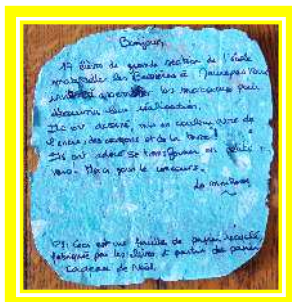 Bonjour,
19 élèves de grande section de l'école
maternelle les à Maurepas vous
les morceaux pour
découvrir leur réalisation.
Ils ont dessiné, mis en couleur avec de
l'encre, des crayons et de la
Ils ont adoré se transformer en
Merci pour le concours.
La maîtresse
PS: Ceci est une feuille de papier recyclé
fabriquée par les élèves à partir des papiers
cadeaux de Noël.